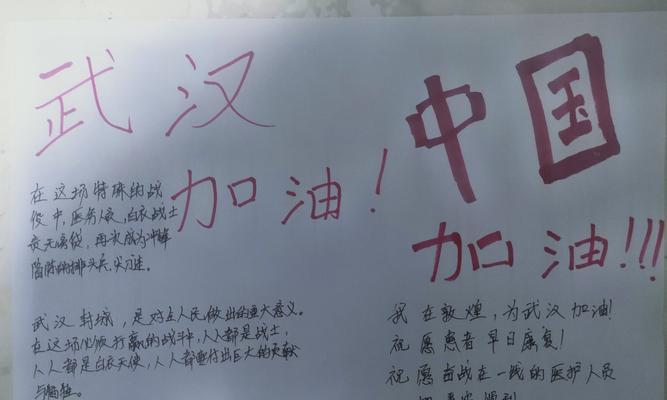 武汉
加油！
中国
加油!!!
在这场特殊的战
役中，医务人员，白衣战士
责无旁贷，再次成为冲锋
陷阵的排头兵、尖刀连。
武汉封城，是对全人民做出的重大意义。
在这场必须打赢的战斗中，人人都是战士，
人人都是白衣天使，人人都要付出巨大的贡献
与牺牲。
我在敦煌，为武汉加油!
祝愿患者早日康复!
祝愿奋战在一线的医护人员